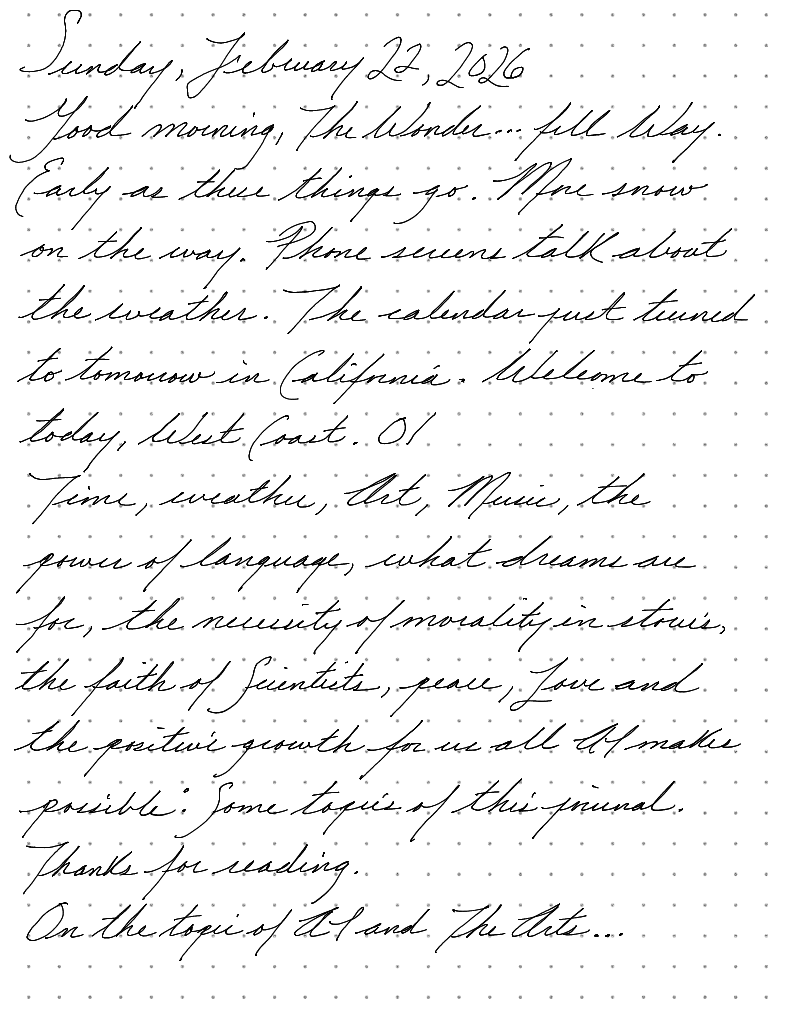 Sunday, February 22, 2026
Good morning, The Wonder... full Way.
Early as these things go. More snow
on the way. Phone screens talk about
the weather. The calendar just turned
to tomorrow in California. Welcome to
today, West Coast. 01
Time, weather, Art, Music, the
power of language, what dreams are
for, the necessity of morality in stories,
the faith of Scientists, peace, Love and
the positive growth for us all AI makes
possible: Some topics of this journal.
Thanks for reading.
On the topic of AI and The Arts...